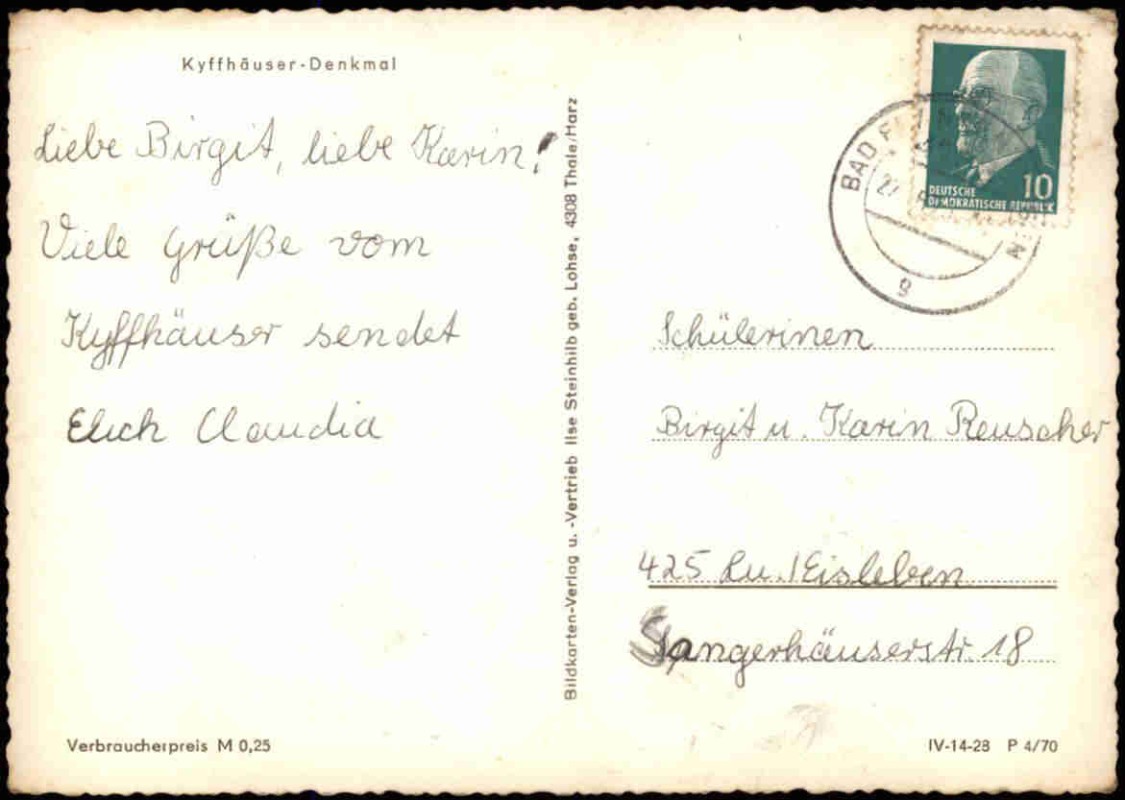 Kyffhäuser-Denkmal
Liebe Birgit, liebe Karin!
Viele Grüße vom
Kyffhäuser sendet
Euch Claudia
Verbraucherpreis M 0,25
Bildkarten-Verlag u. -Vertrieb Ilse Steinhilb geb. Lohse, 4308 Thale/Harz
DEUTSCHE
DEMOKRATISCHE REPUBLIK
10
BAD
g
Schülerinen
Birgit u. Karin Reuscher
425 Lu. Eisleben
Sangerhäuserstr. 18
IV-14-28 P 4/70